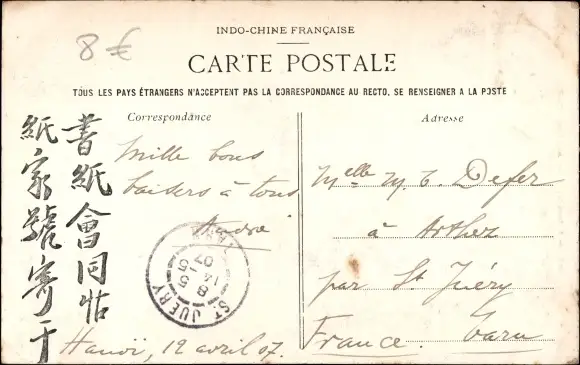 8 €
INDO-CHINE FRANÇAISE
CARTE POSTALE
TOUS LES PAYS ÉTRANGERS N'ACCEPTENT PAS LA CORRESPONDANCE AU RECTO, SE RENSEIGNER A LA POSTE
Correspondance
Mille bons
baisers à tous
André
Hanoï, 12 avril 07.
ST JUERY
8
14 - 5
07
Adresse
Melle M. T. Defer
à Arthez
par St Juéry
France. Tarn
書紙會同
紙家號寄于